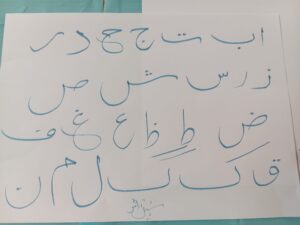 ا ب ت ج ح د ر
ز ر س ش ص
ض ط ظ ع غ ف
ق ک گ ل م ن